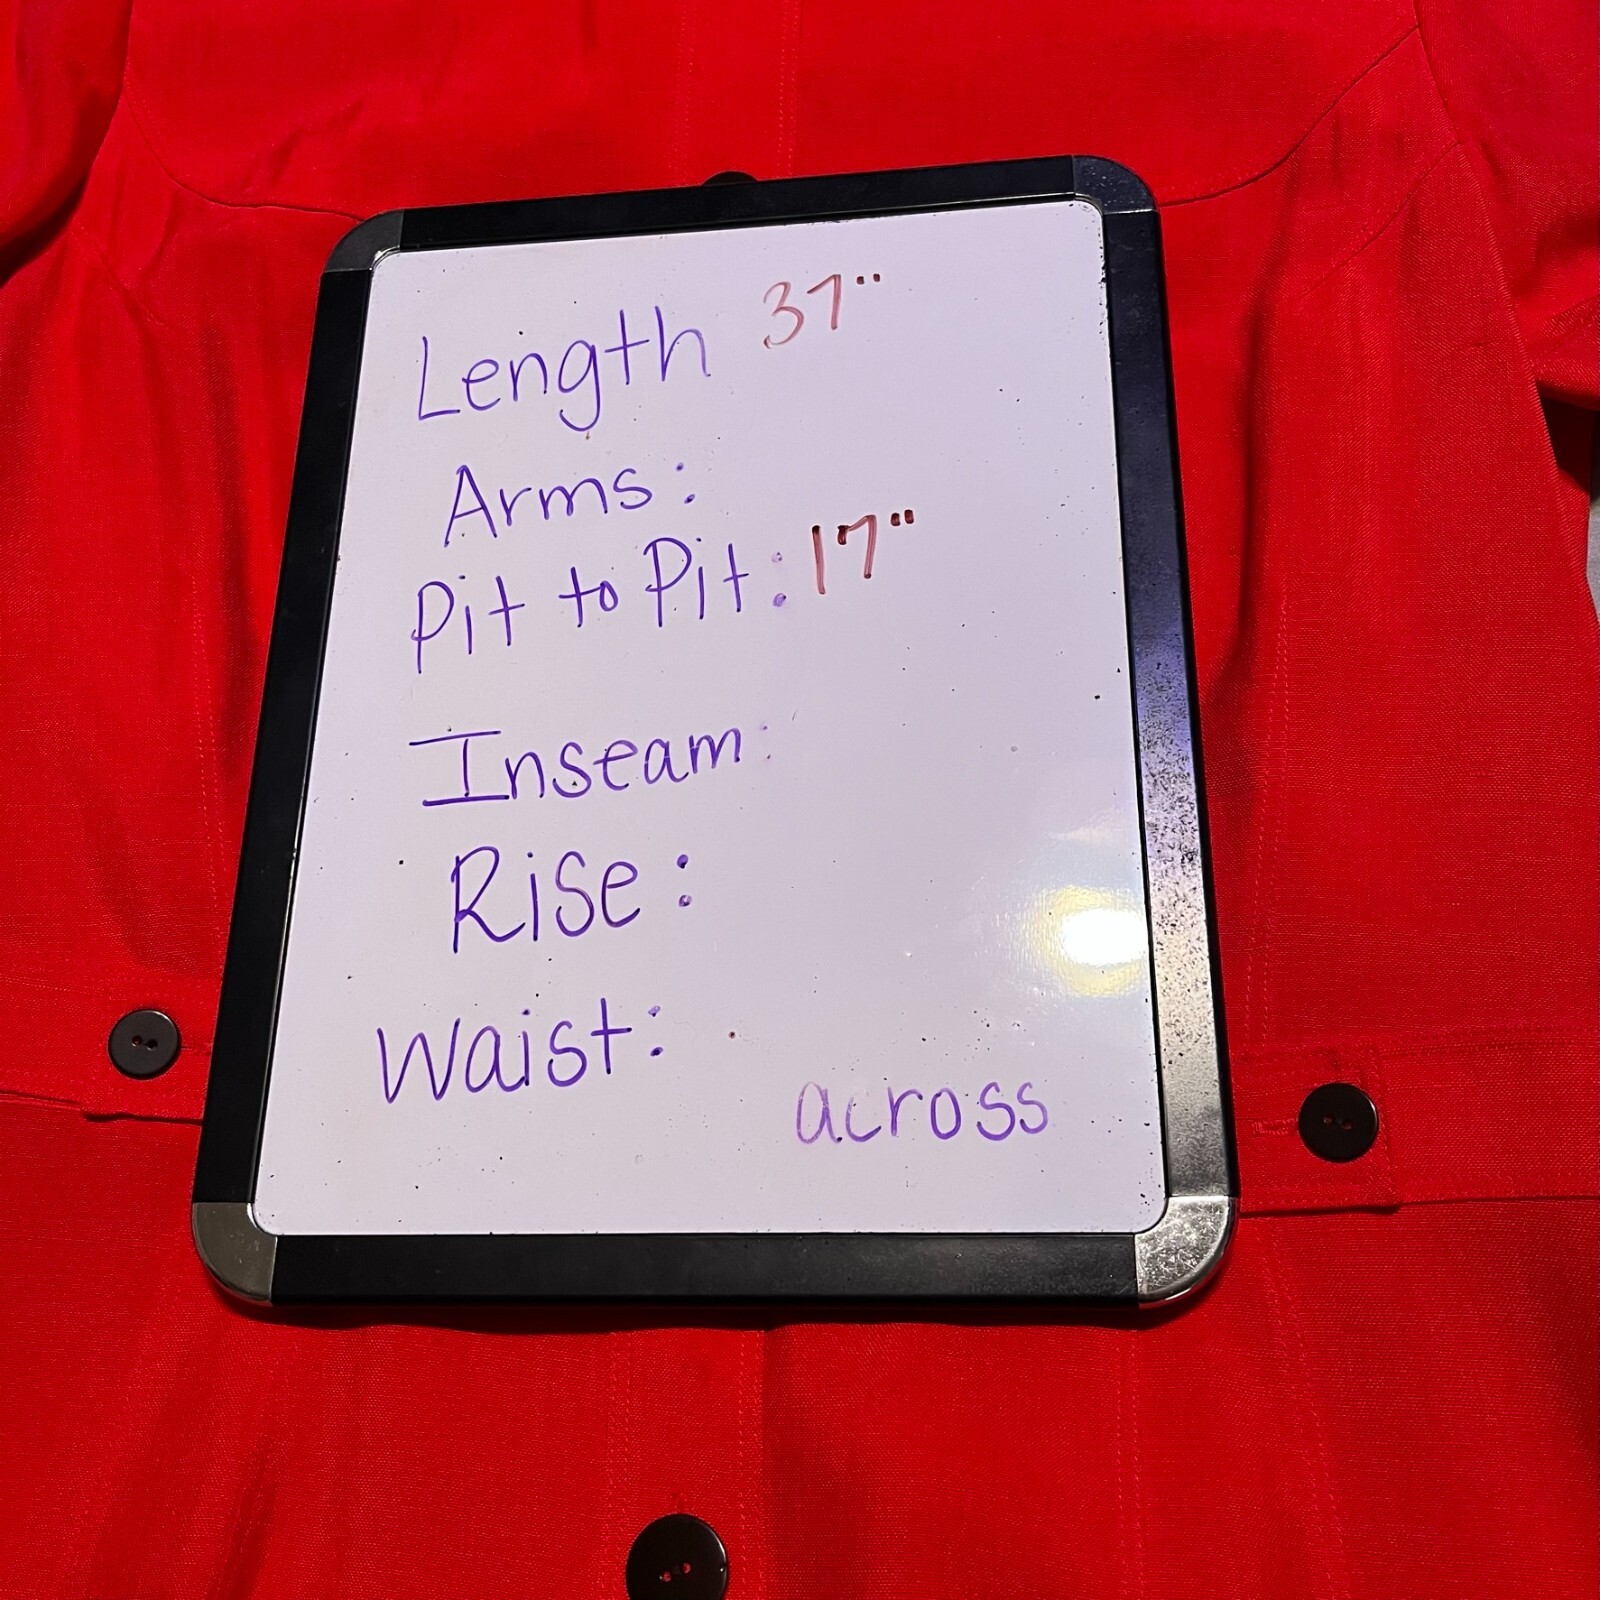 Length 37"
Arms:
Pit to Pit: 17"
Inseam:
Rise:
Waist:
across